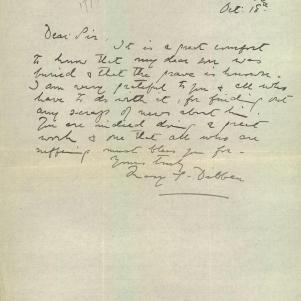 Oct. 18th
Dear Sir, It is a great comfort
to know that my dear son was
buried & that the grave is known.
I am very grateful to you & all who
have to do with it, for finding out
any scraps of news about him.
You are indeed doing a great
work & one that all who are
suffering must bless you for.
Yours truly